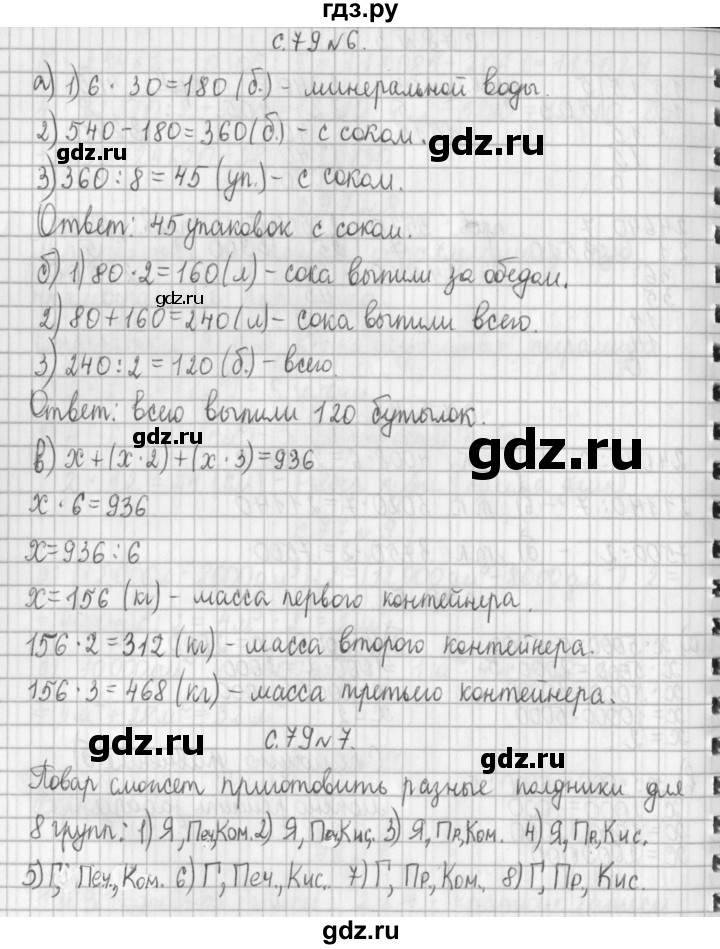 гдз.ру
с.79 №6.
а) 1) 6 · 30 = 180 (б.) - минеральной воды.
2) 540 - 180 = 360 (б.) - с соком.
gdz.ru
gdz.ru
3) 360 : 8 = 45 (уп.) - с соком.
Ответ: 45 упаковок с соком.
б) 1) 80 · 2 = 160 (л) - сока выпили за обедом.
gdz.ru
2) 80 + 160 = 240 (л) - сока выпили всего.
3) 240 : 2 = 120 (б.) - всего.
Ответ: всего выпили 120 бутылок.
gdz.ru
gdz.ru
в) x + (x · 2) + (x · 3) = 936
x · 6 = 936
x = 936 : 6
x = 156 (кг) - масса первого контейнера.
gdz.ru
gdz.ru
156 · 2 = 312 (кг) - масса второго контейнера.
156 · 3 = 468 (кг) - масса третьего контейнера.
gdz.ru
с.79 №7.
Повар сможет приготовить разные полдники для
8 групп: 1) Я, Печ, Ком. 2) Я, Печ, Кис. 3) Я, Пр, Ком. 4) Я, Пр, Кис.
gdz.ru
5) Г, Печ., Ком. 6) Г, Печ., Кис. 7) Г, Пр., Ком., 8) Г, Пр, Кис.
gdz.ru